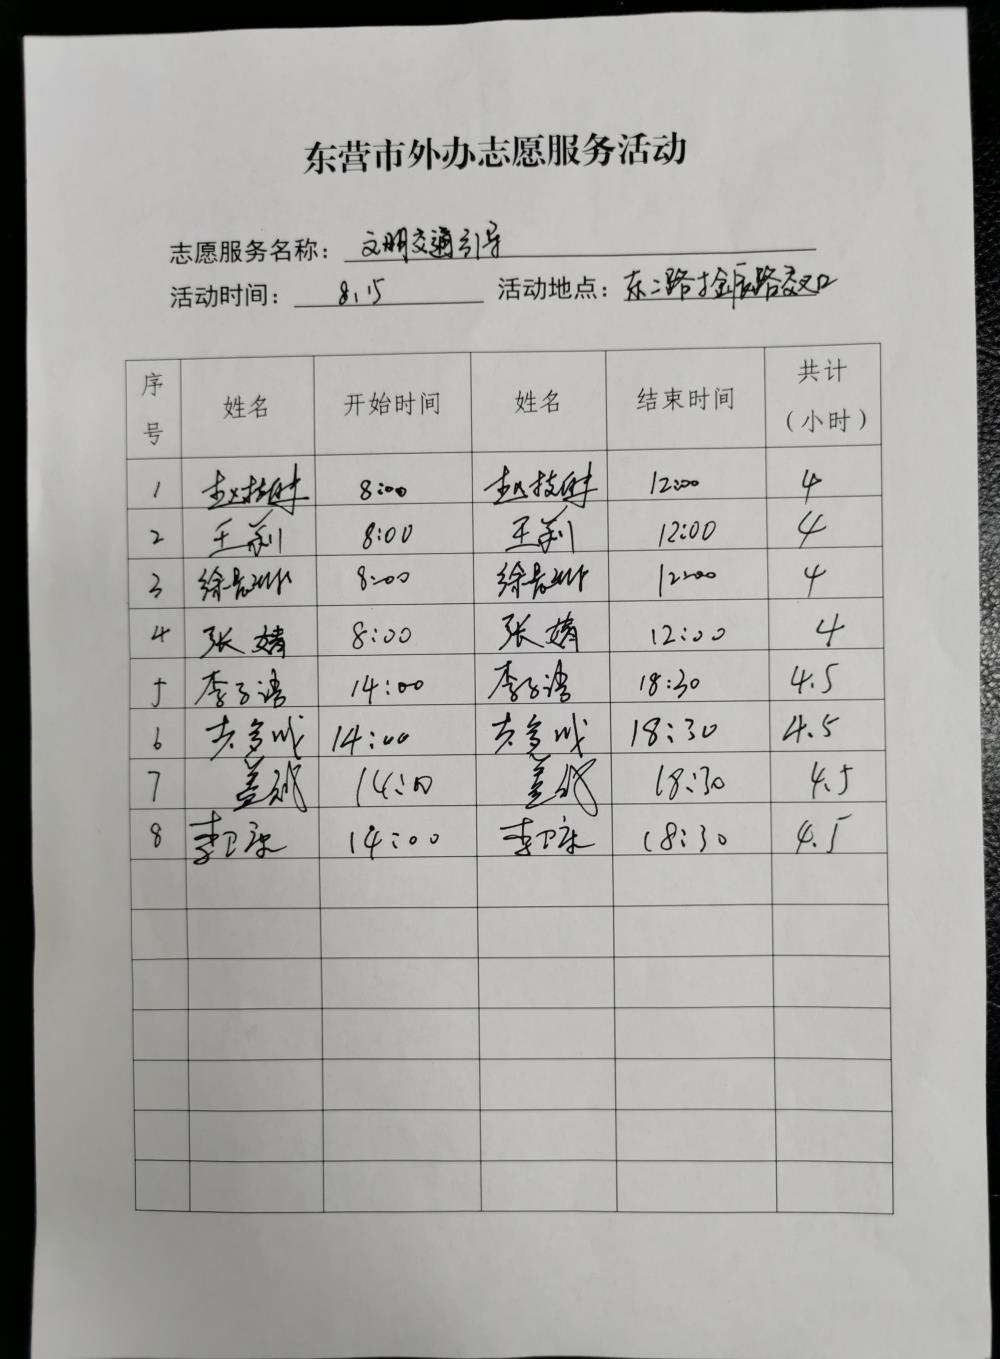 东营市外办志愿服务活动
志愿服务名称： 文明交通引导
活动时间： 8.15 活动地点： 东二路金辰路交叉口
序号 姓名 开始时间 姓名 结束时间 共计（小时）
1 赵 8:00 赵 12:00 4
2 王莉 8:00 王莉 12:00 4
3 徐 8:00 徐 12:00 4
4 张婧 8:00 张婧 12:00 4
5 李子 14:00 李子 18:30 4.5
6 14:00 18:30 4.5
7 盖 14:00 盖 18:30 4.5
8 李卫康 14:00 李卫康 18:30 4.5